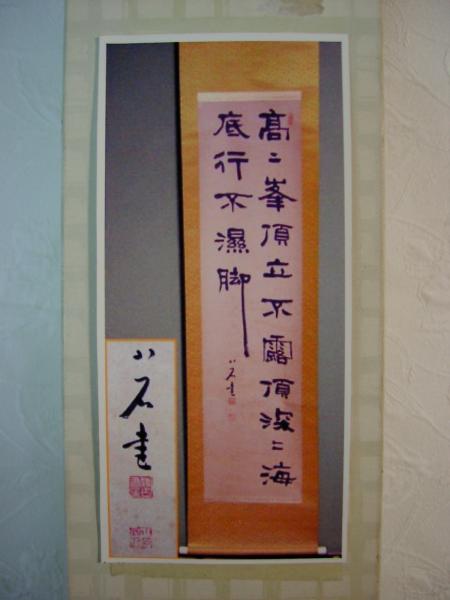 髙〻峯頂立不露頂深〻海
底行不濕脚
小石書
小石書